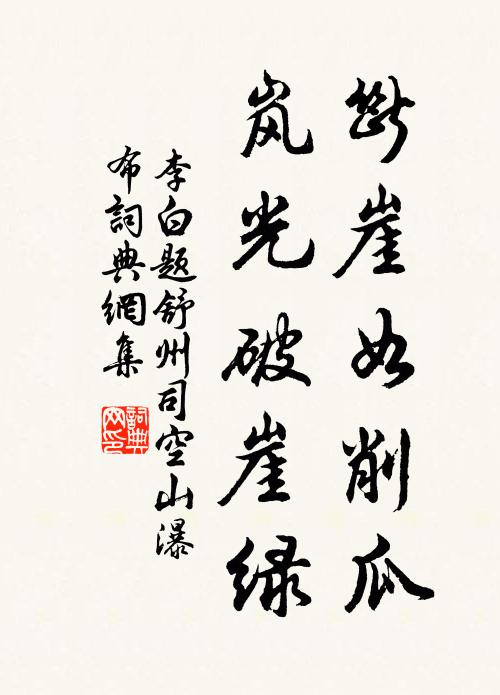 断崖如削瓜
岚光破崖绿
李白题舒州司空山瀑
布詞典網集
詞典
网印